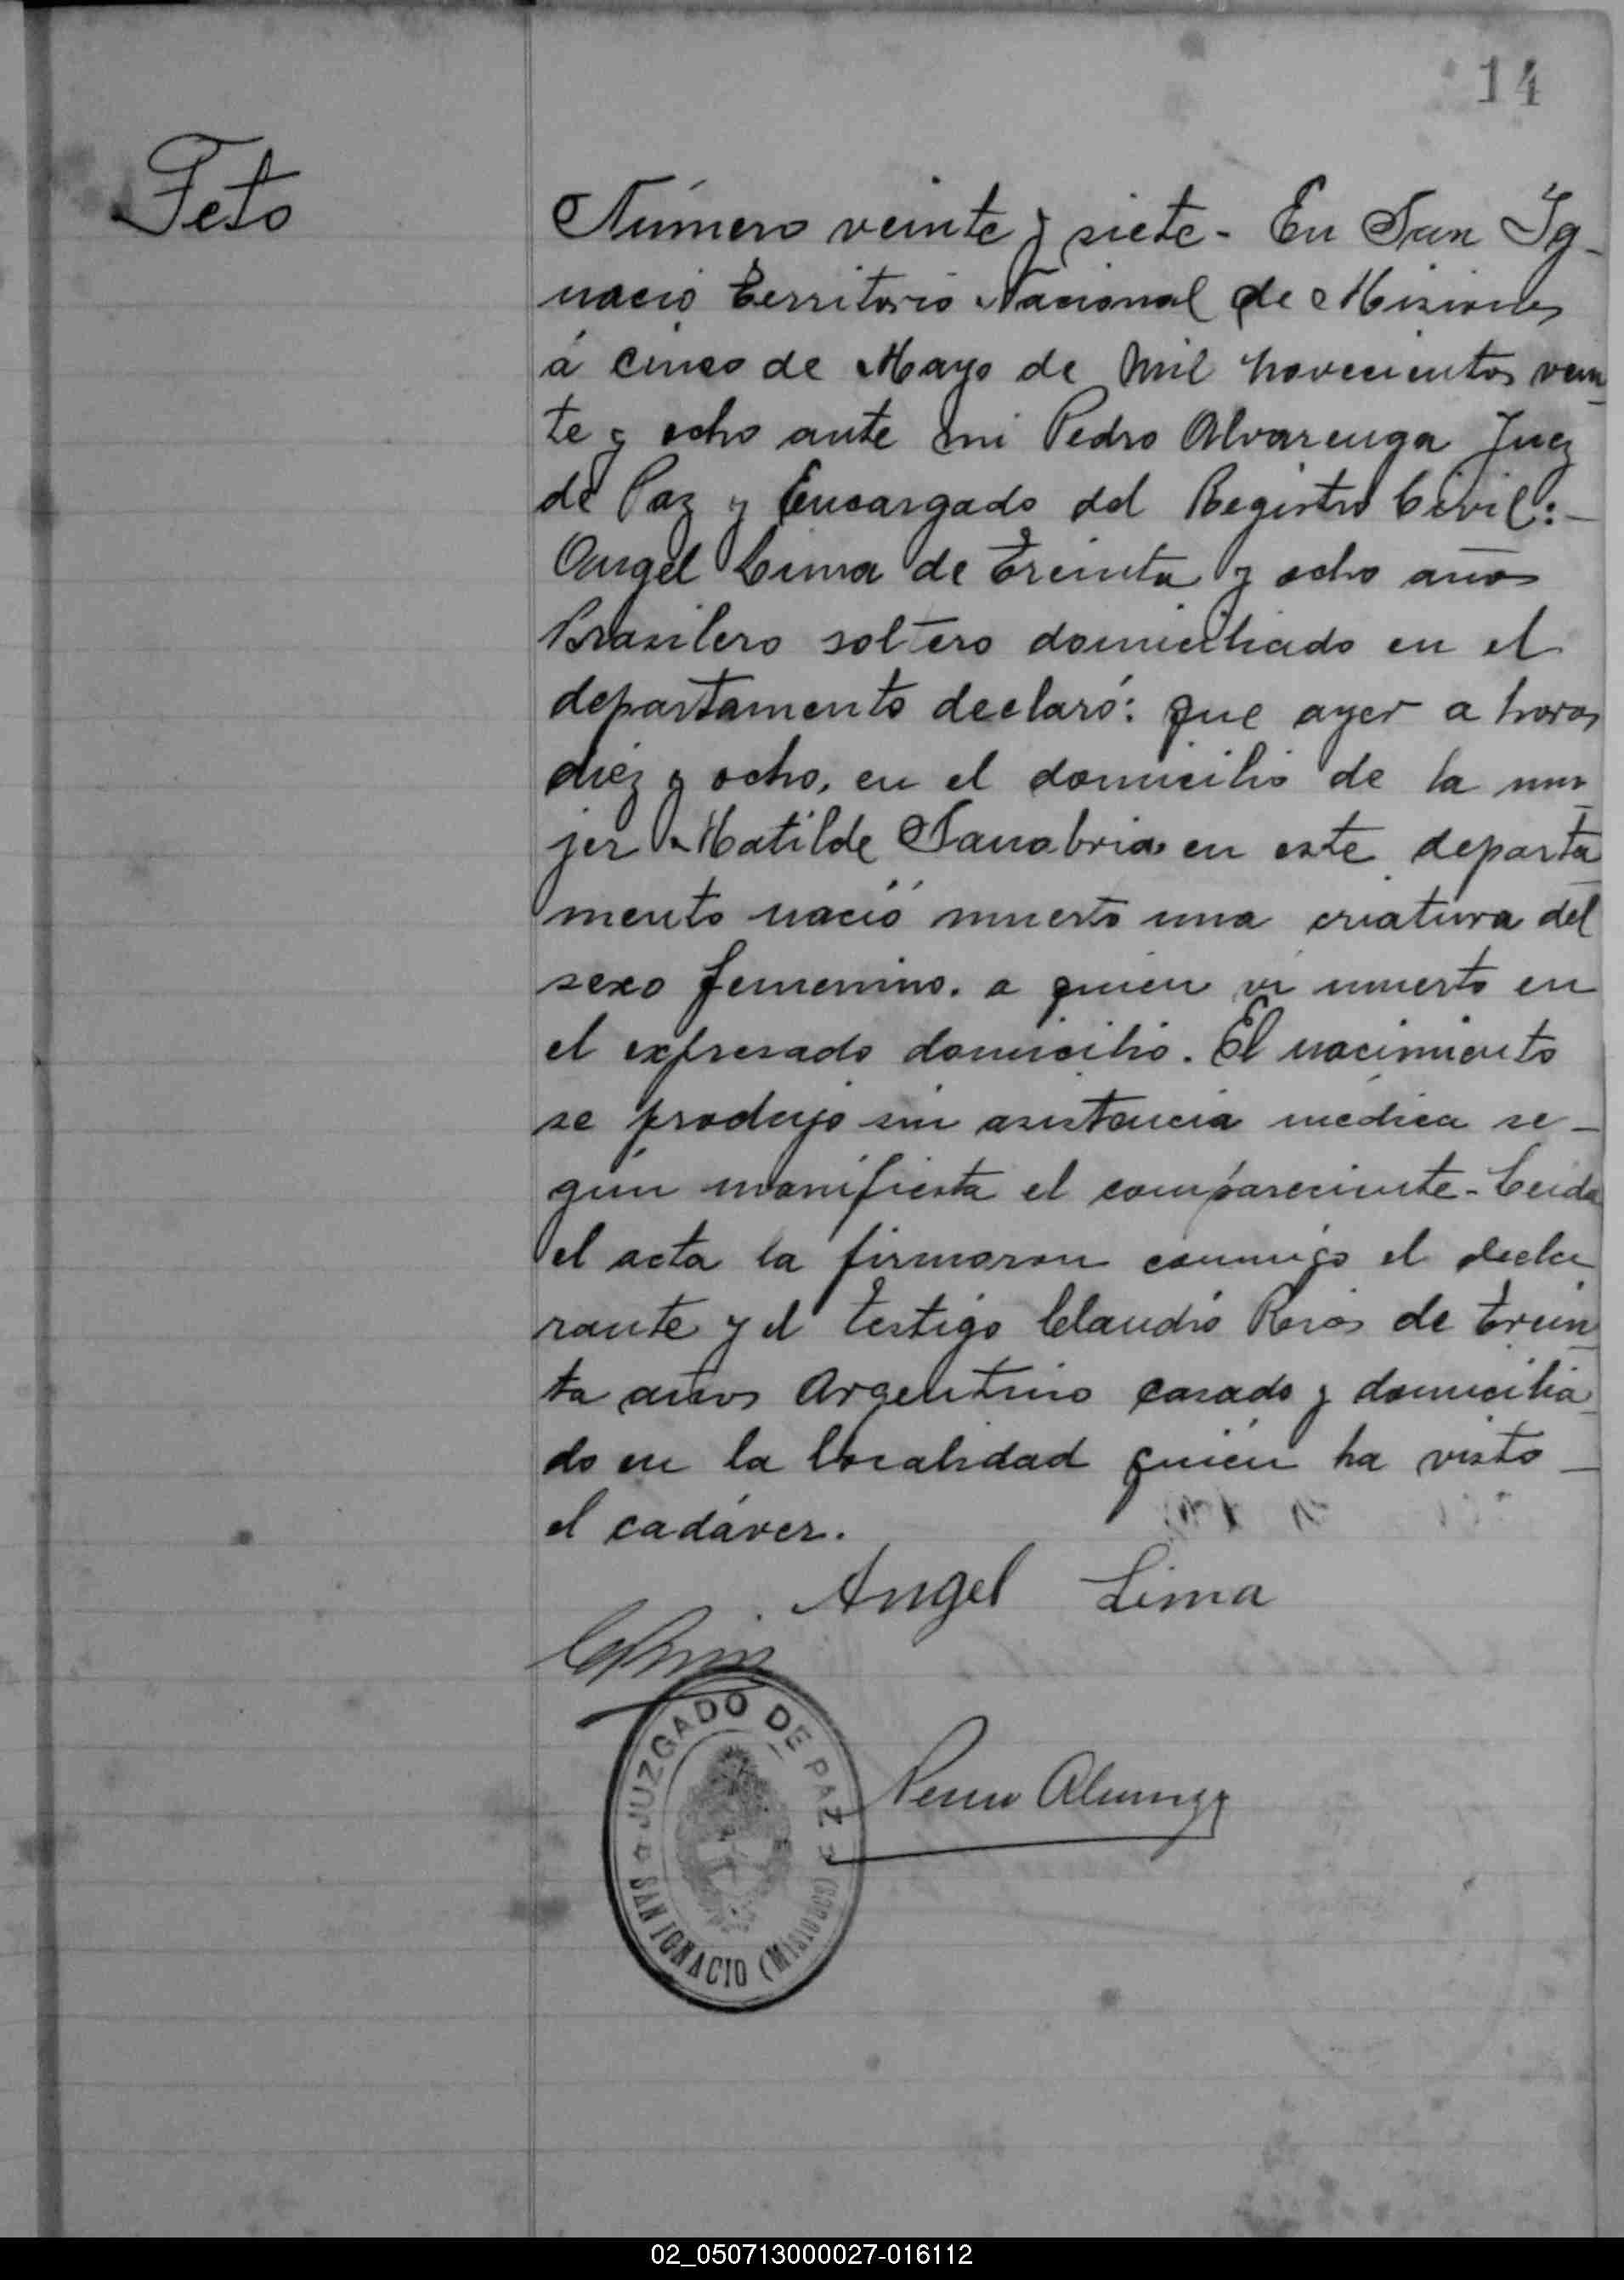 14
Feto
Número veinte y siete - En San Ig-
nacio Territorio Nacional de Misiones
á cinco de Mayo de mil novecientos vein
te y ocho ante mi Pedro Alvarenga Juez
de Paz y Encargado del Registro Civil:-
Angel Lima de treinta y ocho años
Brasilero soltero domiciliado en el
departamento declaró: que ayer a horas
diez y ocho, en el domicilio de la mu
jer Matilde Sanabria en este departa
mento nació muerto una criatura del
sexo femenino. a quien vi muerto en
el expresado domicilio. El nacimiento
se produjo sin asistencia médica se-
gún manifiesta el compareciente - Leida
el acta la firmaron conmigo el decla
rante y el testigo Claudio Rios de trein
ta años Argentino casado y domicilia
do en la localidad quien ha visto -
el cadáver.
Angel Lima
JUZGADO DE PAZ
SAN IGNACIO (Misiones)
02_050713000027-016112